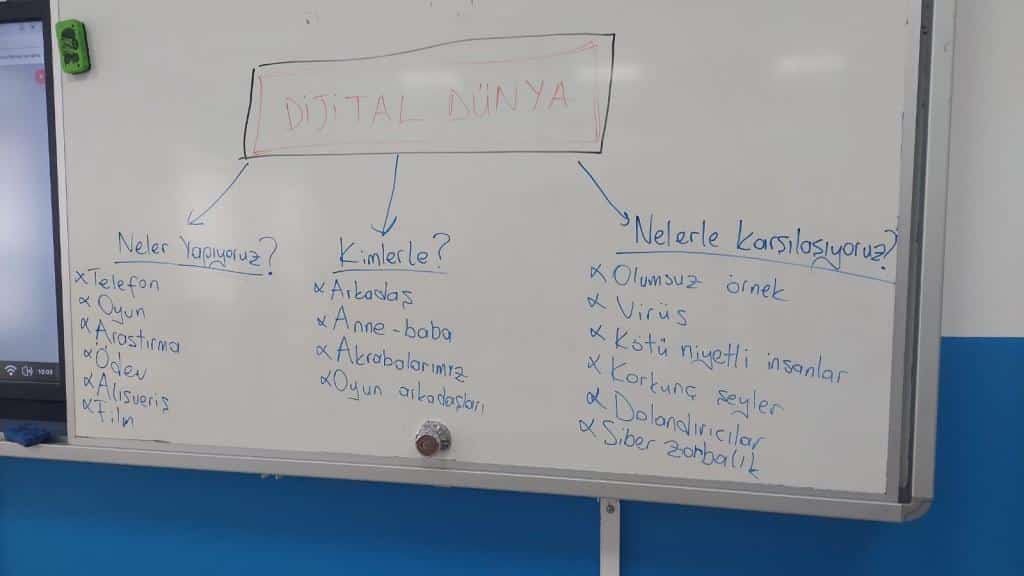 DİJİTAL DÜNYA
Neler Yapıyoruz?
x Telefon
x Oyun
x Araştırma
x Ödev
x Alışveriş
x Film
Kimlerle?
x Arkadaş
x Anne-baba
x Akrabalarımız
x Oyun arkadaşları
Nelerle Karşılaşıyoruz?
x Olumsuz örnek
x Virüs
x Kötü niyetli insanlar
x Korkunç şeyler
x Dolandırıcılar
x Siber zorbalık